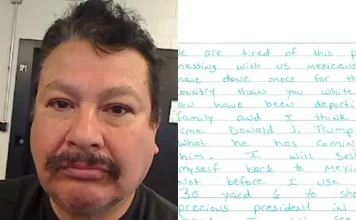 e are tired of this p
messing with us mexicans
have done more for th
country than you white
ou have been deporti
family and I think
ime Donald J. Trump
what he has comin
him. I will sel
myself back to Mexi
not before I use
30 yard 6 to sh
precious president in